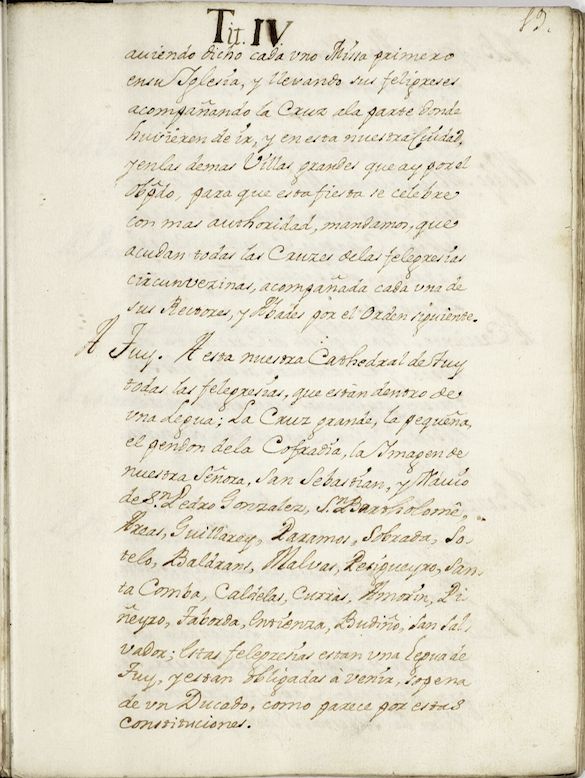 Tit. IV.
19.
auiendo dicho cada vno Missa primero
en su Iglesia, y llevando sus feligreses
acompañando la Cruz ala parte donde
huvieren de ir, y en esta nuestra Ciudad,
y en las demas Villas grandes que ay por el
Obpdo, para que esta fiesta se celebre
con mas authoridad, mandamos, que
acudan todas las Cruzes delas felegresias
circunvezinas, acompañada cada vna de
sus Rectores, y Abades por el Orden siguiente.
A Tuy. A esta nuestra Cathedral de Tuy
todas las felegresias, que estàn dentro de
vna legua; La Cruz grande, la pequeña,
el pendon dela Cofradia, la Imagen de
nuestra Señora, San Sebastian, y Navio
de Sn. Pedro Gonzalez, Sn. Bartholomê,
Areas, Guillarey, Paramos, Sobrada, So-
telo, Baldrans, Malvas, Pesigueyro, San-
ta Comba, Caldelas, Curràs, Amorin, Pi-
ñeyro, Taborda, Entienza, Budiño, San Sal-
vador; Estas felegresias estan vna Legua de
Tuy, y estan obligadas à venir, sopena
de vn Ducado, como parece por estas
Constituciones.